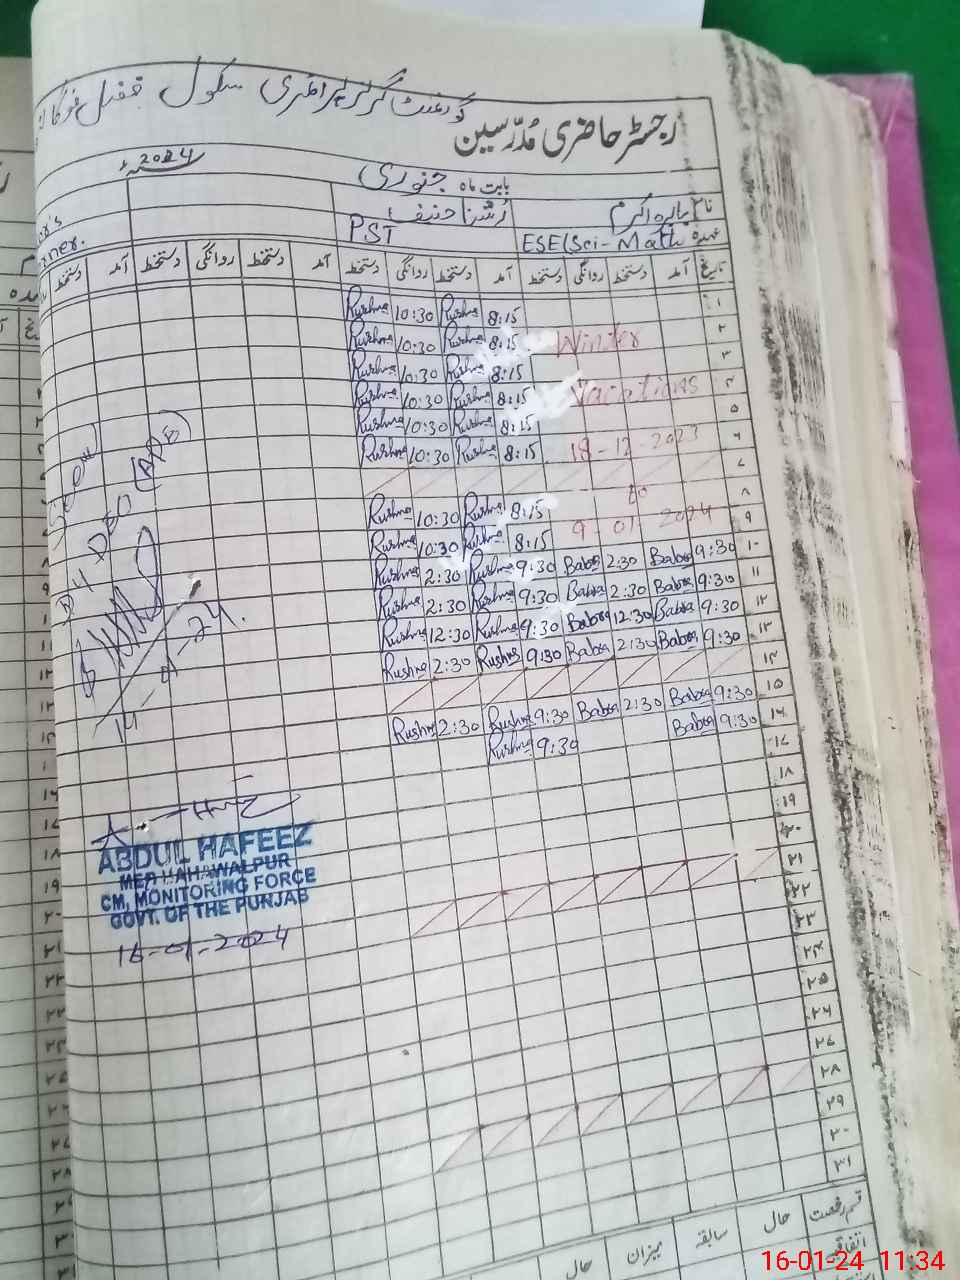 گورنمنٹ گرلز پرائمری سکول
رجسٹر حاضری مُدرّسین
2024ء
بابت ماہ جنوری
نام بابرہ اکرم رُشنا حنیف
عہدہ ESE(Sci-Math PST
تاریخ آمد دستخط روانگی دستخط آمد دستخط روانگی دستخط آمد دستخط روانگی دستخط آمد دستخط
۱ 8:15 Rushna 10:30 Rushna
۲ Winter 8:15 Rushna 10:30 Rushna
۳ 8:15 Rushna 10:30 Rushna
۴ Vacations 8:15 Rushna 10:30 Rushna
۵ 8:15 Rushna 10:30 Rushna
۶ 18-12-2023 8:15 Rushna 10:30 Rushna
۷
۸ to 8:15 Rushna 10:30 Rushna
۹ 9-01-2024 8:15 Rushna 10:30 Rushna
۱۰ 9:30 Babra 2:30 Babra 9:30 Rushna 2:30 Rushna
۱۱ 9:30 Babra 2:30 Babra 9:30 Rushna 2:30 Rushna
۱۲ 9:30 Babra 12:30 Babra 9:30 Rushna 12:30 Rushna
۱۳ 9:30 Babra 2:30 Babra 9:30 Rushna 2:30 Rushna
۱۴
۱۵ 9:30 Babra 2:30 Babra 9:30 Rushna 2:30 Rushna
۱۶ 9:30 Babra 9:30 Rushna
۱۷
۱۸
۱۹
۲۰
۲۱
۲۲
۲۳
۲۴
۲۵
۲۶
۲۷
۲۸
۲۹
۳۰
۳۱
قسم رخصت حال سابقہ میزان حال
اتفاقیہ
ABDUL HAFEEZ
MEA BAHAWALPUR
CM, MONITORING FORCE
GOVT. OF THE PUNJAB
16-01-2024
16-01-24 11:34